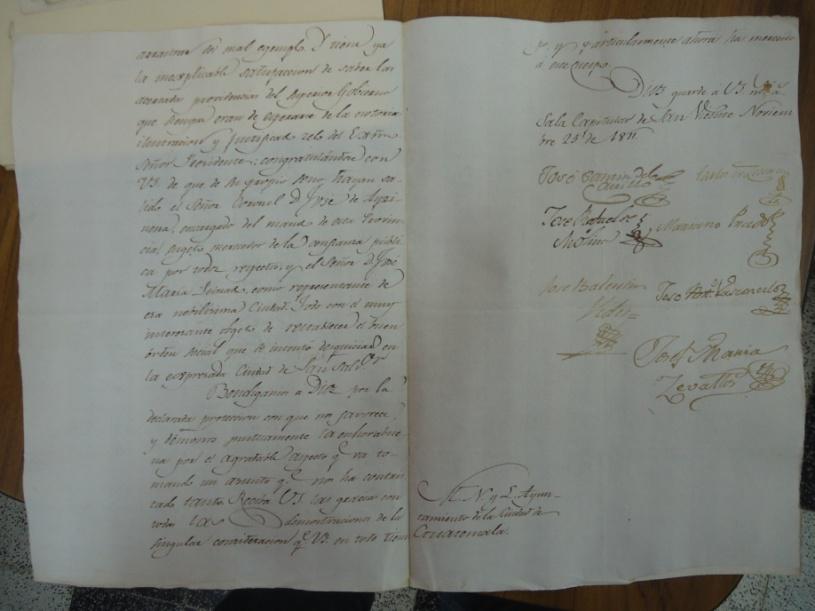 del mal exemplo. Y tiene ya
la inexplicable satisfaccion de saber las
acertadas providencias del Superior Gobierno
que siempre eran de esperarse de la notoria
ilustracion y justificado zelo del Exmo.
Señor Presidente: congratulandose con
VS. de que de su propio seno hayan sa-
lido el Señor Coronel D. José de Ayzi-
nena, encargado del mando de esta Provin-
cia, sugeto merecedor de la confianza publi-
ca por todos respectos, y el Señor D. José
Maria Peinado, como representante de
esa nobilisima Ciudad. Todo con el muy
interesante objeto de restablecer el buen
orden social que se intentó desquiciar en
la expresada Ciudad de San Salvor.
Bendigamos a Dios por la
declarada proteccion con que nos favorece,
y démonos mutuamente la enhorabue-
na por el agradable aspecto q.e va to-
mando un asunto q.e nos ha contur-
vado tanto. Reciba VS. las gracias con
todas las demostraciones de la
singular consideracion q.e VS. en todo tiem-
po, y particularmente ahora ha merecido
á este cuerpo.
Dios guarde á VS. m.s a.s
Sala Capitular de San Vicente Noviem-
bre 24 de 1811
José Santin del
Castillo
José
Molina
Mariano Prado
José Balentin
José Vasconcelos
Josef Maria
Zevallos
M. N. y L. Ayun-
tamiento de la Ciudad de
Goatemala.